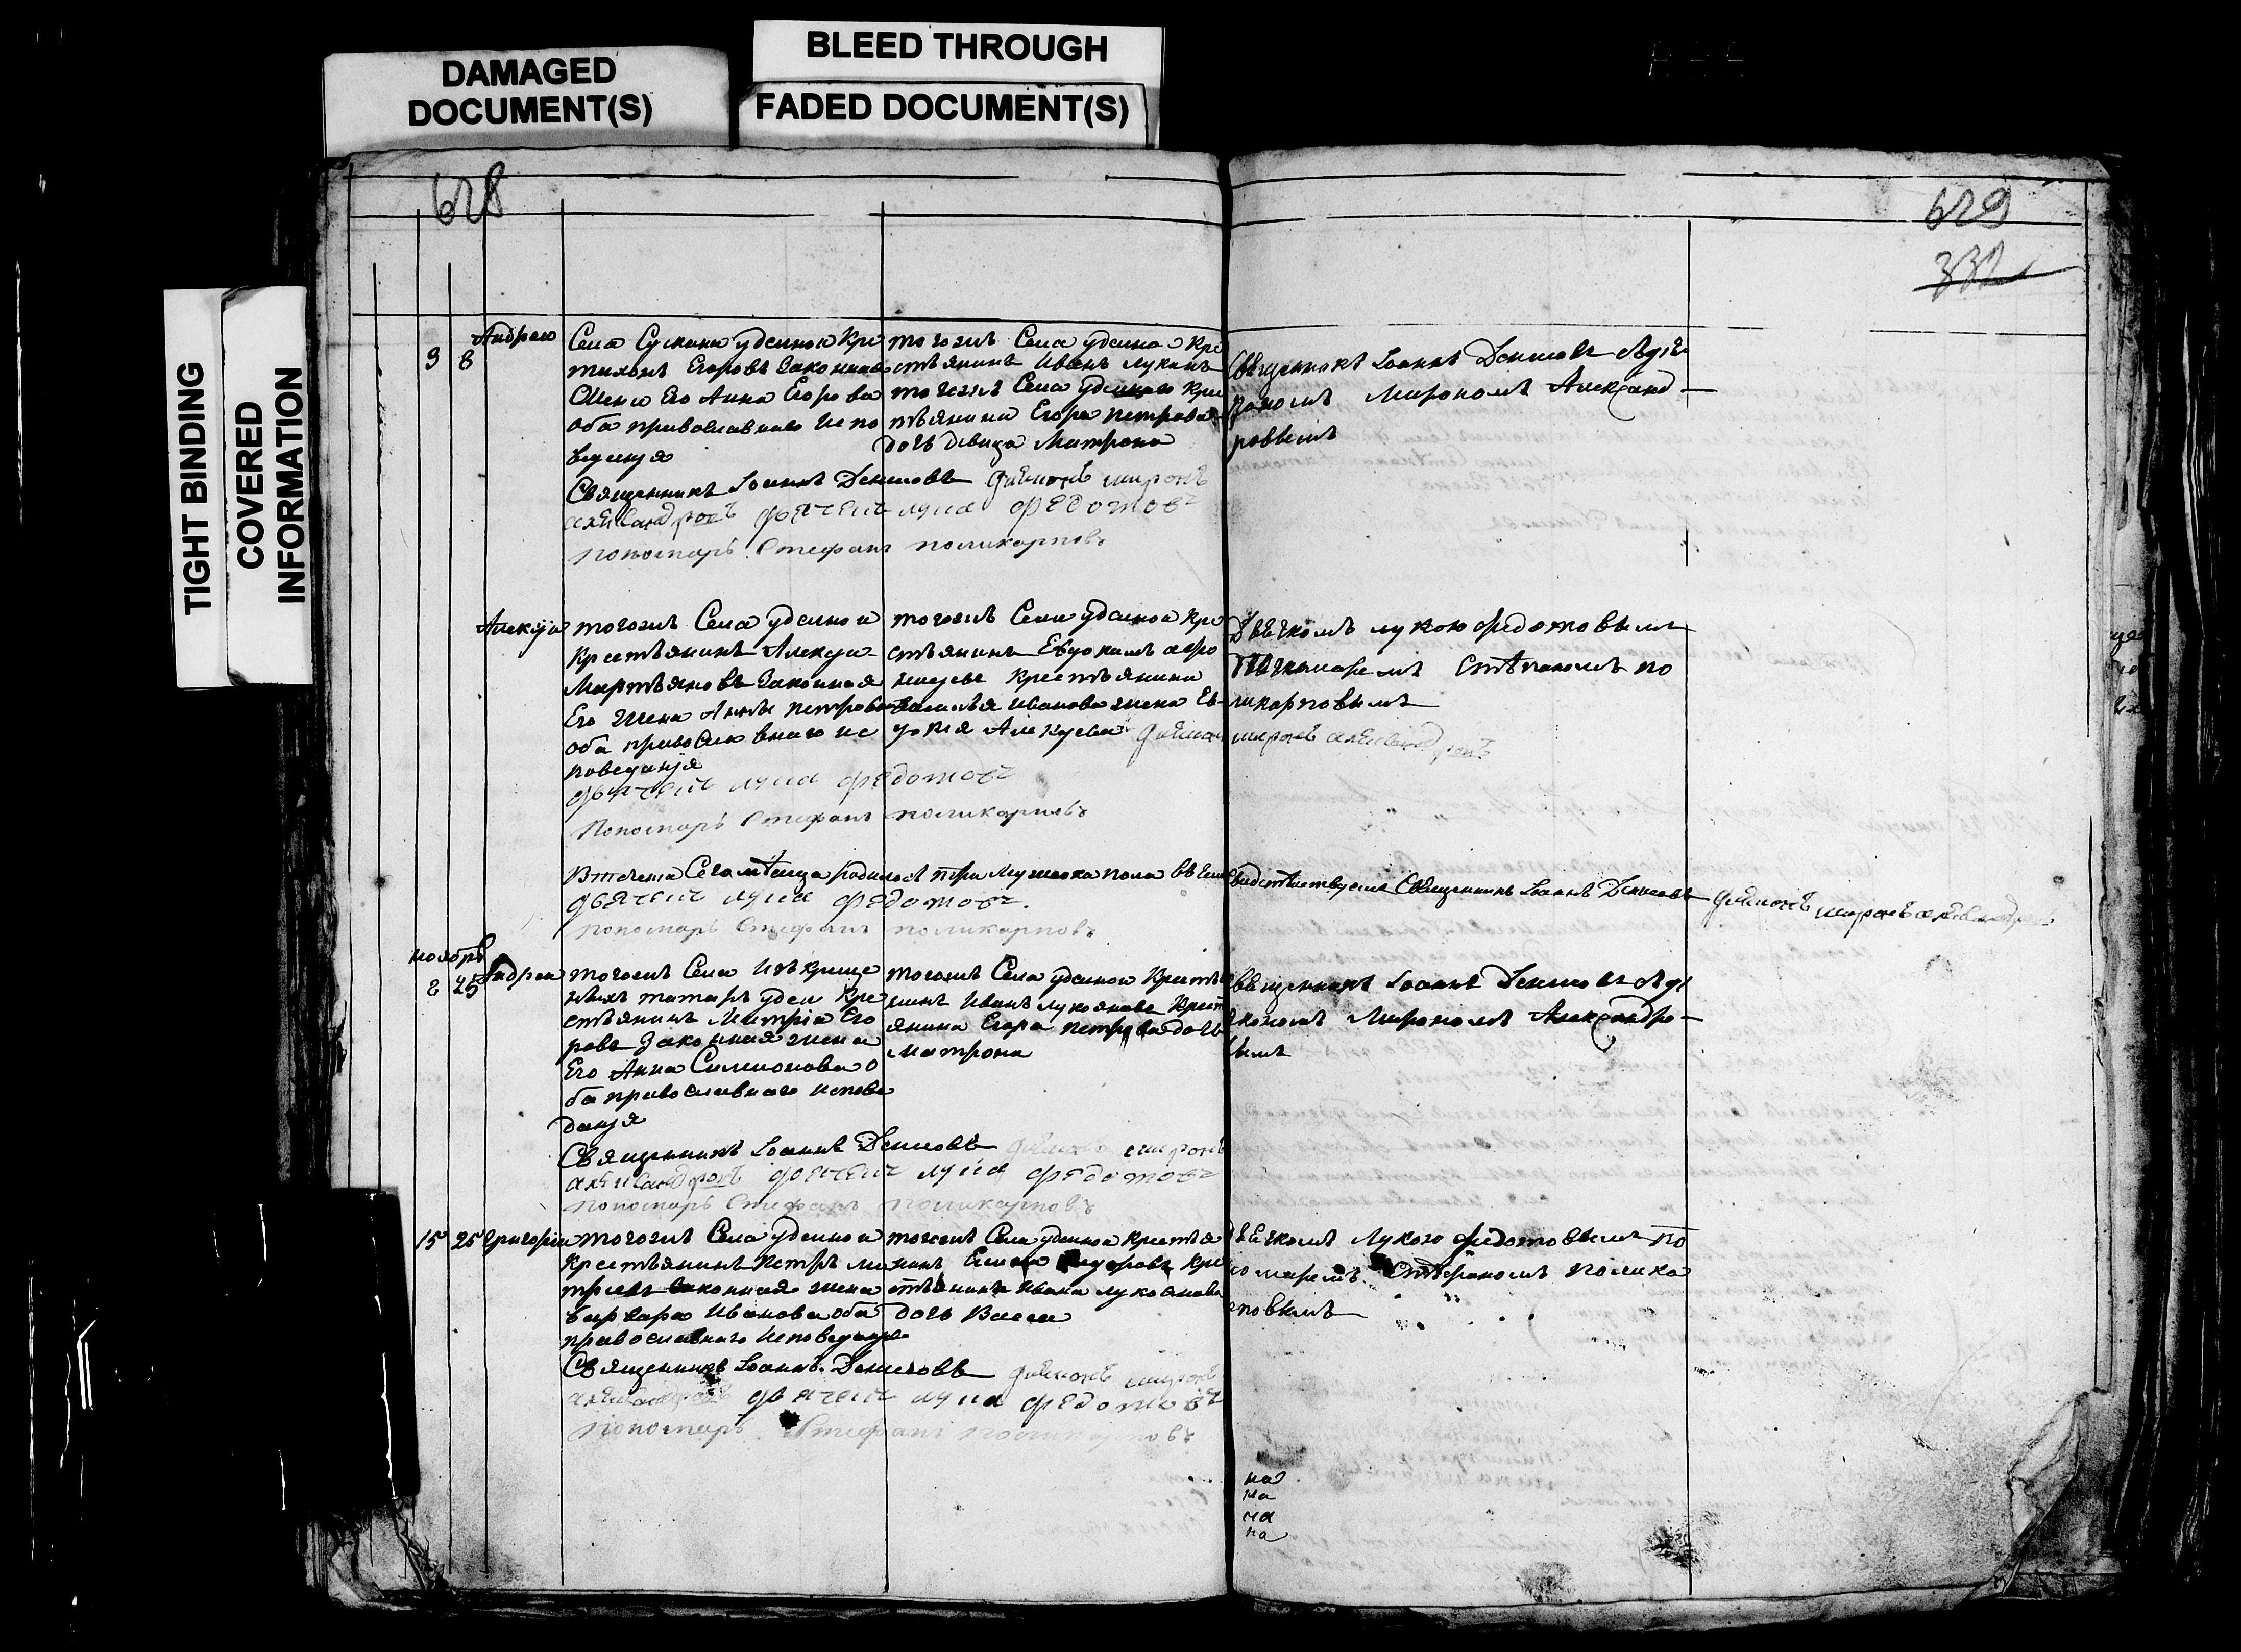 DAMAGED
DOCUMENT(S)
BLEED THROUGH
FADED DOCUMENT(S)
TIGHT BINDING
COVERED
INFORMATION
628
629
332
3 8
Андрею
Села удельнои Кре
Тихонъ Егоровъ законная
Жена Его Анна Егорова
оба православнаго испо
веданjя
тогожъ Села удельнои Кре
стьянинъ Иванъ Лукинъ
тогожъ Села удельнаго Кре
стьянина Егора петрова
дочь девица Матрона
Священникъ Iоаннъ Денисовъ съ дiа
кономъ Мирономъ Александ
ровымъ
Священникъ Iоаннъ Денисовъ диаконъ миронъ
александровъ дьячекъ лука федотовъ
пономарь Стефанъ поликарповъ
Алексеи
тогожъ Села удельнои
Крестьянинъ Алексеи
Мартьяновъ законная
Его жена Анна петрова
оба православнаго ис
поведанjя
тогожъ Села удельнои Кре
стьянинъ Евдокимъ афо
насьевъ Крестьянина
Василья Иванова жена Ев
докия Алексеева
Дьячкомъ лукою федотовымъ
Пономаремъ Стефаномъ по
ликарповымъ
диаконъ миронъ александровъ
дьячекъ лука федотовъ
Пономарь Стефанъ поликарповъ
Втечениi Сего месеца родилось три мужеска пола въ чемъ свидетельствуемъ Священникъ Iоаннъ Денисовъ диаконъ миронъ александровъ
дьячекъ лука федотовъ.
пономарь Стефанъ поликарповъ
ноябрь
2 25
Андреи
тогожъ Села Изъ креще
ныхъ татаръ удел Кре
стьянинъ Митрiи Его
ровъ Законная жена
Его Анна Симионова о
ба православнаго испове
данjя
тогожъ Села удельнои Крестья
нинъ Иванъ лукояновъ Крест
янина Егора петрова дочь
Матрона
Священникъ Iоаннъ Денисовъ съ дi
якономъ Мирономъ Александро
вымъ
Священникъ Iоаннъ Денисовъ диаконъ миронъ
александровъ дьячекъ лука федотовъ
пономарь Стефанъ поликарповъ
15 25
Григорiи
тогожъ Села удельнои
Крестьянинъ Петръ ми
трiевъ законная жена
варвара Иванова оба
православнаго Исповеданjя
тогожъ Села удельнои крестья
нинъ федоровъ Кре
стьянина Ивана лукоянова
дочь Васса
дьячкомъ Лукою федотовымъ по
номаремъ Стефаномъ полика
рповымъ
Священникъ Iоаннъ Денисовъ диаконъ миронъ
александровъ дьячекъ лука федотовъ
пономарь Стефанъ поликарповъ
на
на
на
на